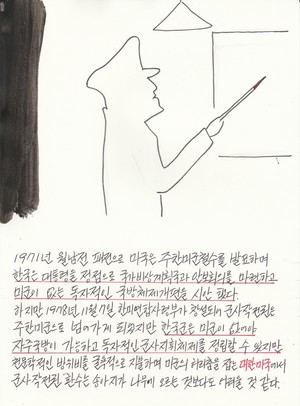 1971년 월남전 패전으로 미국은 주한미군철수를 발표하며
한국은 대통령을 정점으로 국가비상기획국과 안보회의를 마련하고
미군이 없는 독자적인 국방체제개편을 시작 했다.
하지만 1978년 11월 7일 한미연합사령부가 창설되며 군사작전권은
주한미군으로 넘어가게 되었지만 한국군은 미군이 없어야
자주국방이 가능하고 독자적인 군사지휘체제를 정립할 수 있지만
천문학적인 방위비를 굴욕적으로 지불하며 미군의 허리춤을 잡는 대한미국에서
군사작전권 환수는 송아지가 나무에 오르는 것보다도 어려울 것 같다.